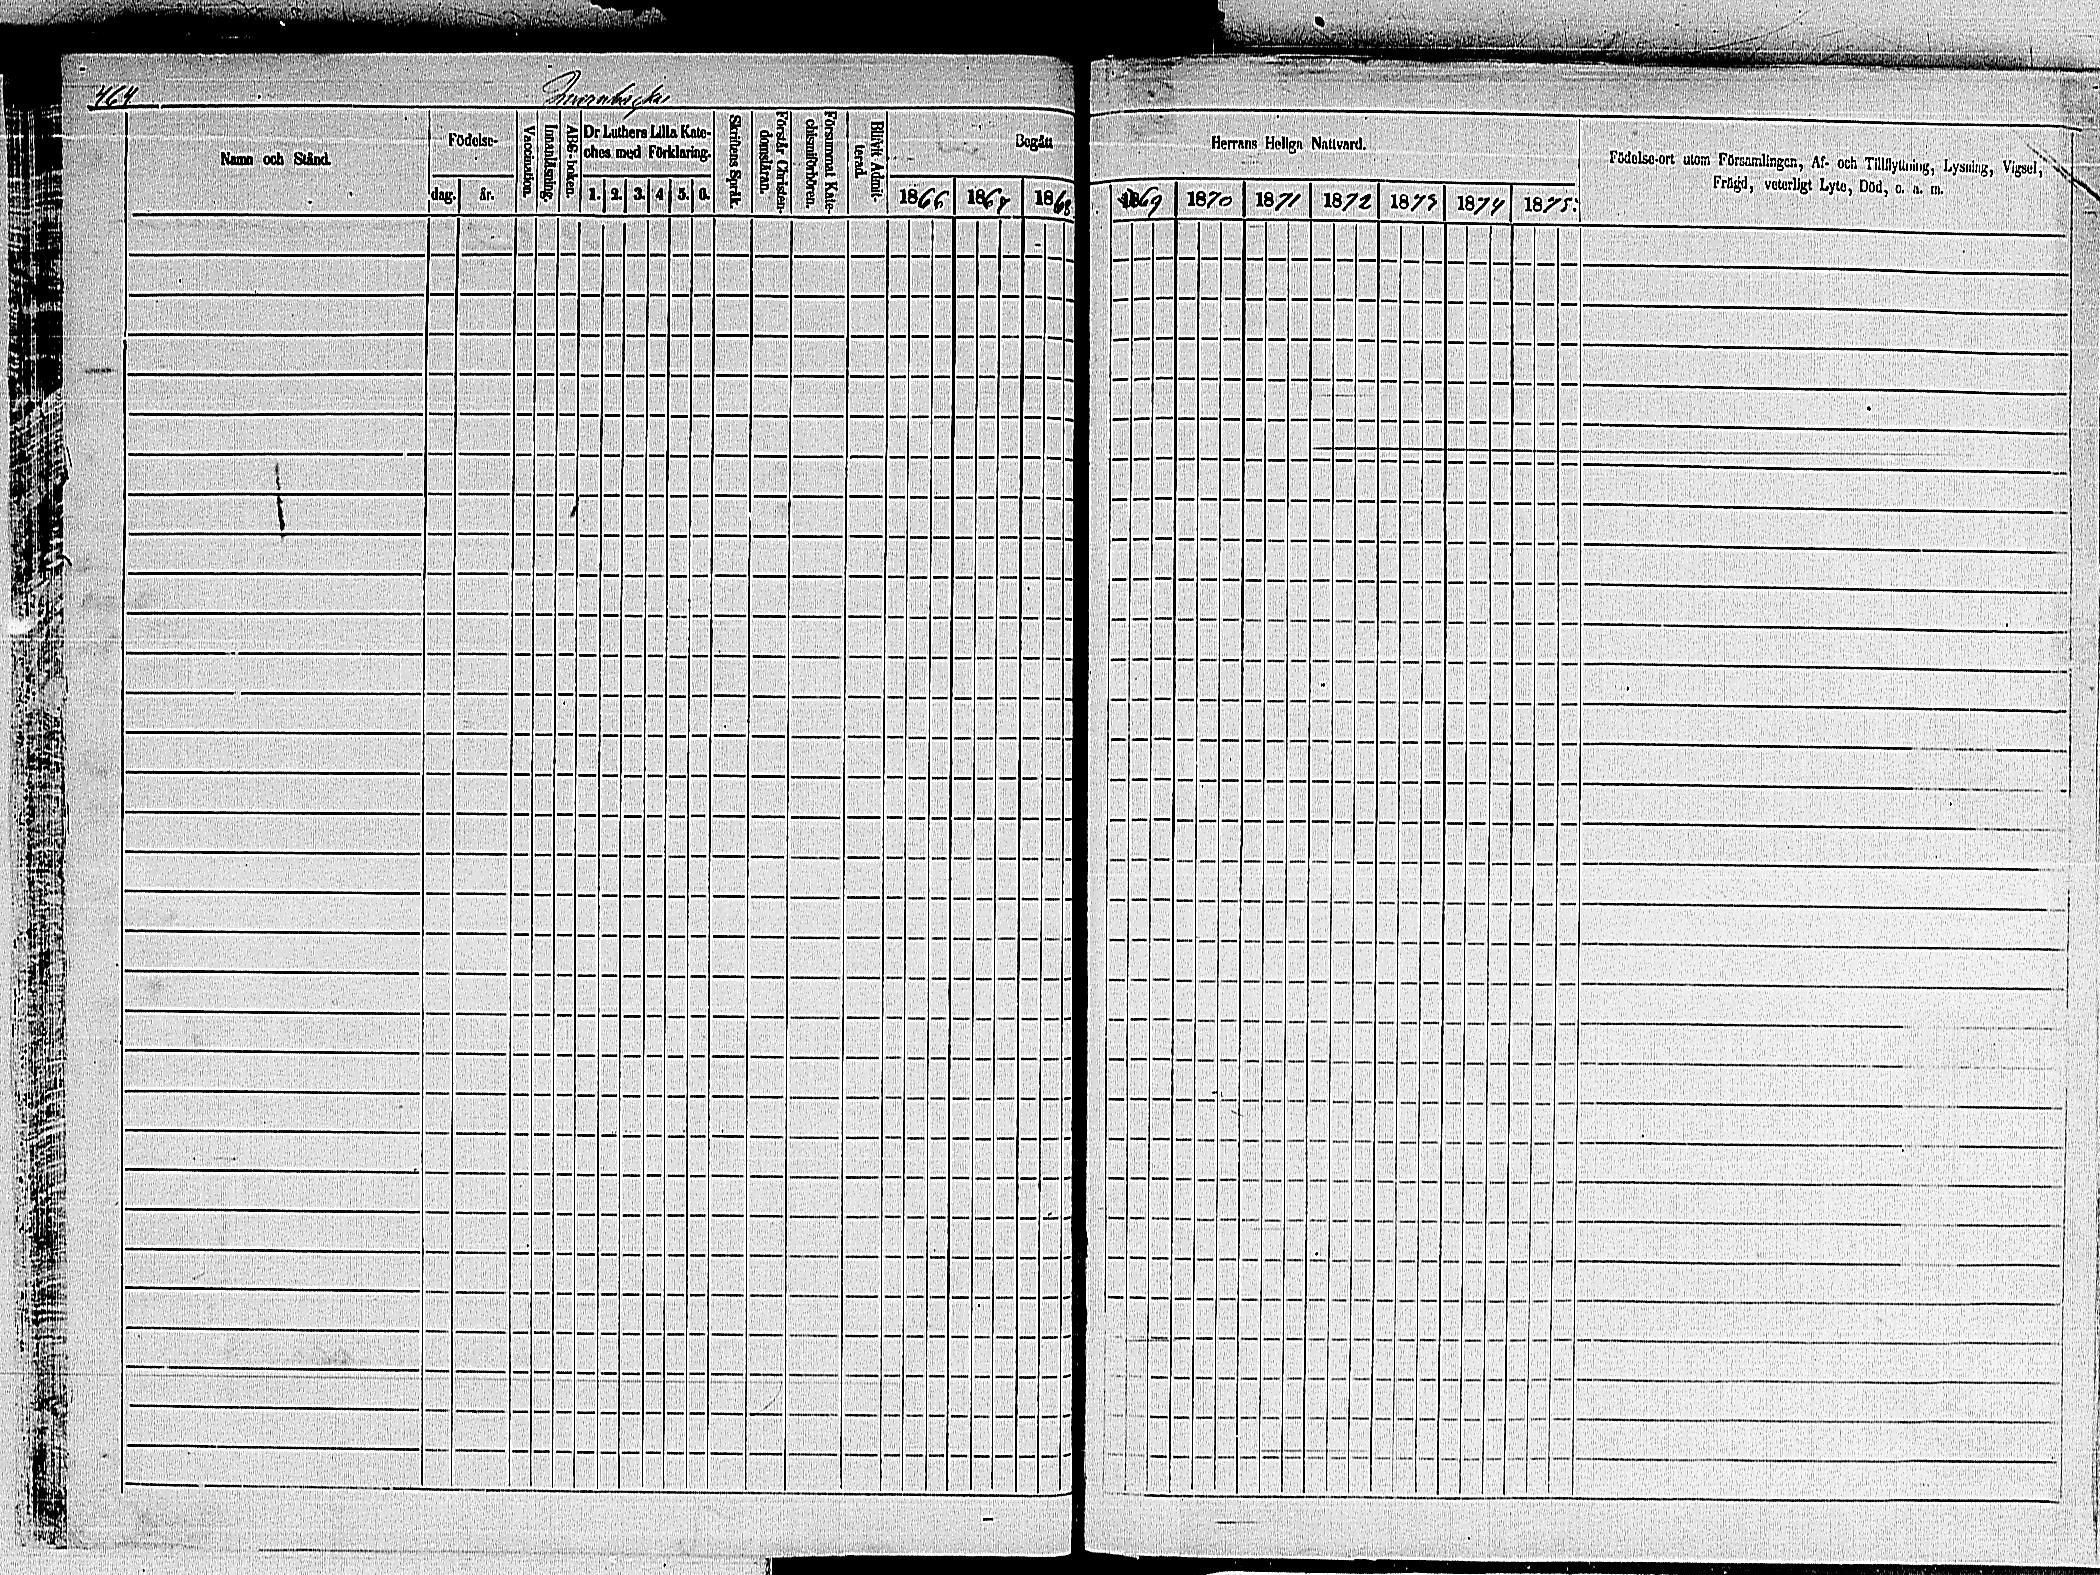 464
Namn och Stånd.
Födelse-
dag.
år.
Vaccination.
Innanläsning.
ABC-boken.
Dr Luthers Lilla Kate-
ches med Förklaring.
1. 2. 3. 4 5. 6.
Skriftens Språk.
Förstår Christen-
domsläran.
Försummat Kate-
chismiförhören.
Blifvit Admit-
terad.
Begått
1866 1867 1868
Herrans Heliga Nattvard.
1869 1870 1871 1872 1873 1874 1875.
Födelse-ort utom Församlingen, Af- och Tillflyttning, Lysning, Vigsel,
Frägd, veterligt Lyte, Död, o. a. m.